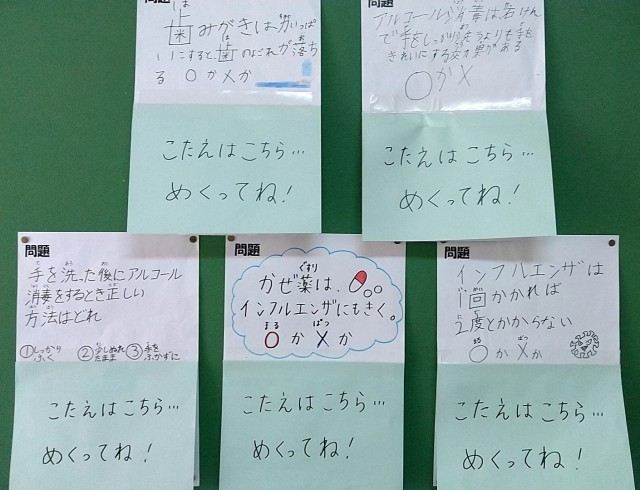 問題
は
歯みがきは力いっぱ
いにすると、歯のよごれが落ち
る ○か×か
こたえはこちら…
めくってね！
アルコール消毒は、石けん
で手をしっかり洗うよりも手を
きれいにする効果がある
○か×
こたえはこちら…
めくってね！
問題
手を洗った後にアルコール
消毒をするとき正しい
方法はどれ
①しっかりふく ②少しぬれたまま ③手をふかずに
こたえはこちら…
めくってね！
問題
かぜ薬は、
インフルエンザにもきく。
○か×か
こたえはこちら…
めくってね！
問題
インフルエンザは
1回かかれば
2度とかからない
○か×か
こたえはこちら…
めくってね！